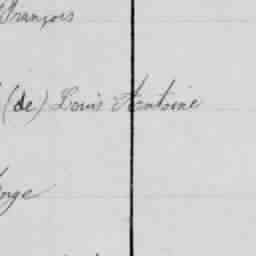 François
(de) Louis Antoine